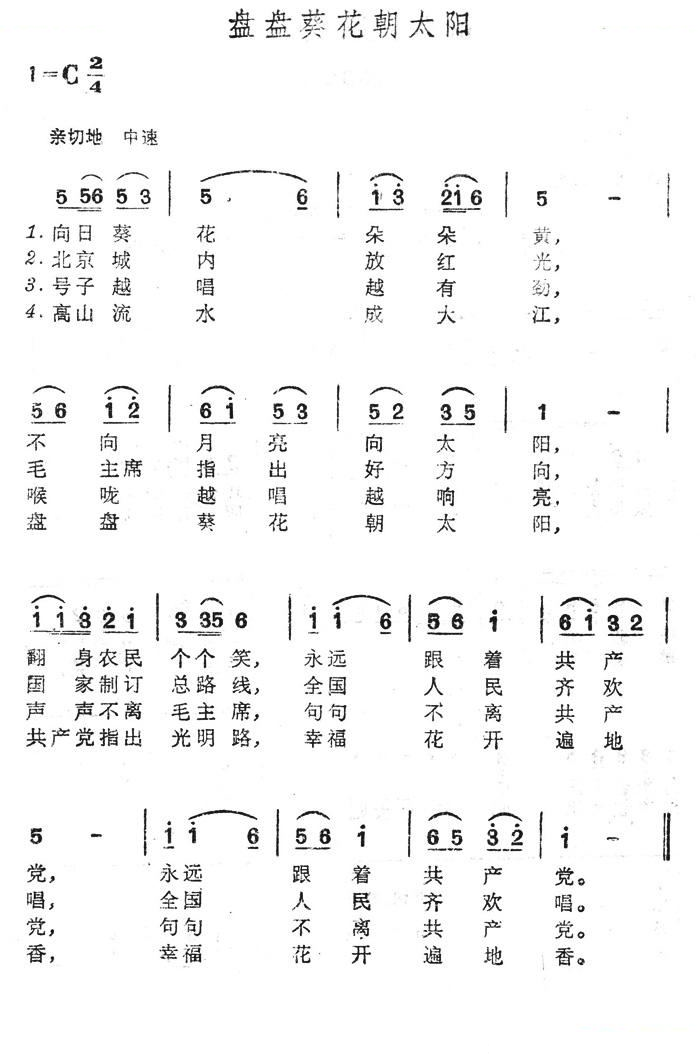 盘盘葵花朝太阳
1=C 2/4
亲切地 中速
5 56 5 3 | 5 . 6 | i 3 2i 6 | 5 - |
1. 向日葵花朵朵黄，
2. 北京城内放红光，
3. 号子越唱越有劲，
4. 高山流水成大江，
5 6 i 2 | 6 i 5 3 | 5 2 3 5 | 1 - |
不向月亮向太阳，
毛主席指出好方向，
喉咙越唱越响亮，
盘盘葵花朝太阳，
i i 3 2 i | 3 35 6 | i i 6 | 5 6 i | 6 i 3 2 |
翻身农民个个笑，永远跟着共产
国家制订总路线，全国人民齐欢
声声不离毛主席，句句不离共产
共产党指出光明路，幸福花开遍地
5 - | i i 6 | 5 6 i | 6 5 3 2 | i - ‖
党，永远跟着共产党。
唱，全国人民齐欢唱。
党，句句不离共产党。
香，幸福花开遍地香。